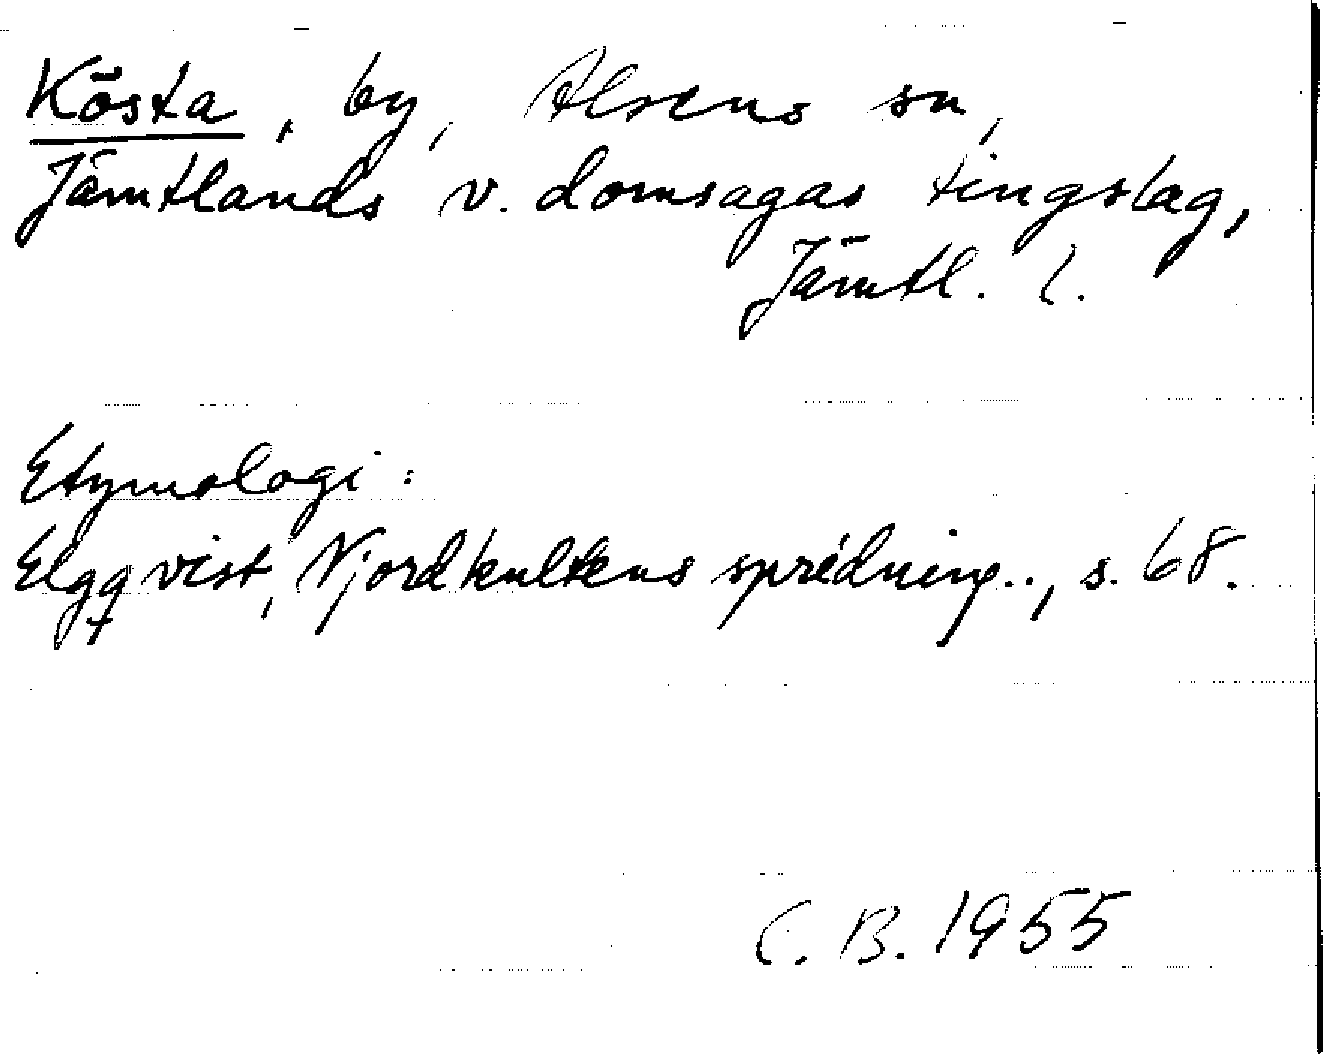 Kösta, by, Alsens sn,
Jämtlands v. domsagas tingslag,
Jämtl. l.
Etymologi:
Elgqvist, Njordkultens spridning.., s. 68.
C. B. 1955